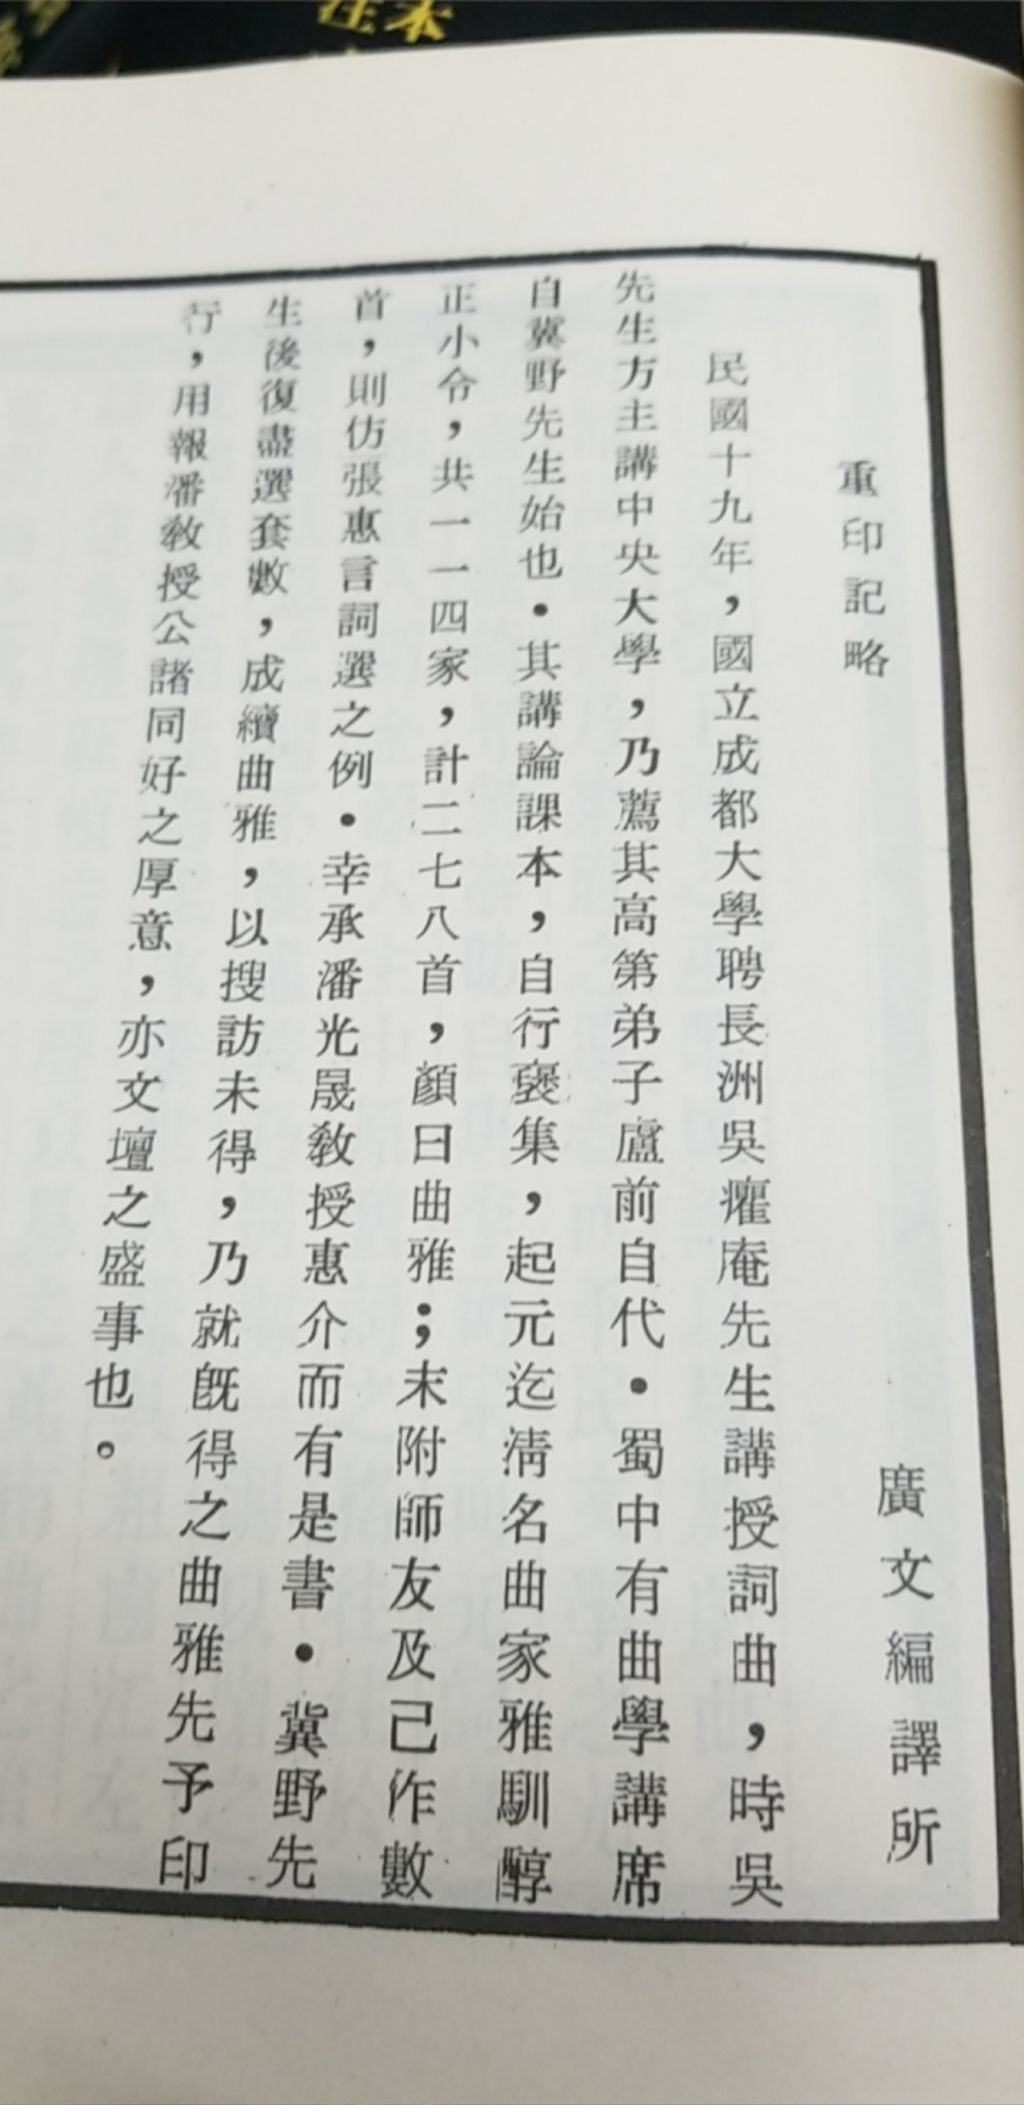 注本
重印記略
廣文編譯所
民國十九年，國立成都大學聘長洲吳癯庵先生講授詞曲，時吳
先生方主講中央大學，乃薦其高第弟子盧前自代．蜀中有曲學講席
自冀野先生始也．其講論課本，自行裒集，起元迄清名曲家雅馴醇
正小令，共一一四家，計二七八首，顏曰曲雅；末附師友及己作數
首，則仿張惠言詞選之例．幸承潘光晟教授惠介而有是書．冀野先
生後復盡選套數，成續曲雅，以搜訪未得，乃就既得之曲雅先予印
行，用報潘教授公諸同好之厚意，亦文壇之盛事也。